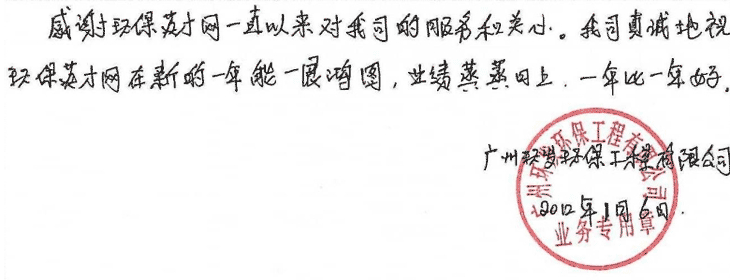 感谢环保英才网一直以来对我司的服务和关心。我司真诚地祝
环保英才网在新的一年能一展鸿图,业绩蒸蒸日上,一年比一年好。
广州环发环保工程有限公司
2012年1月6日
广州环发环保工程有限公司
业务专用章